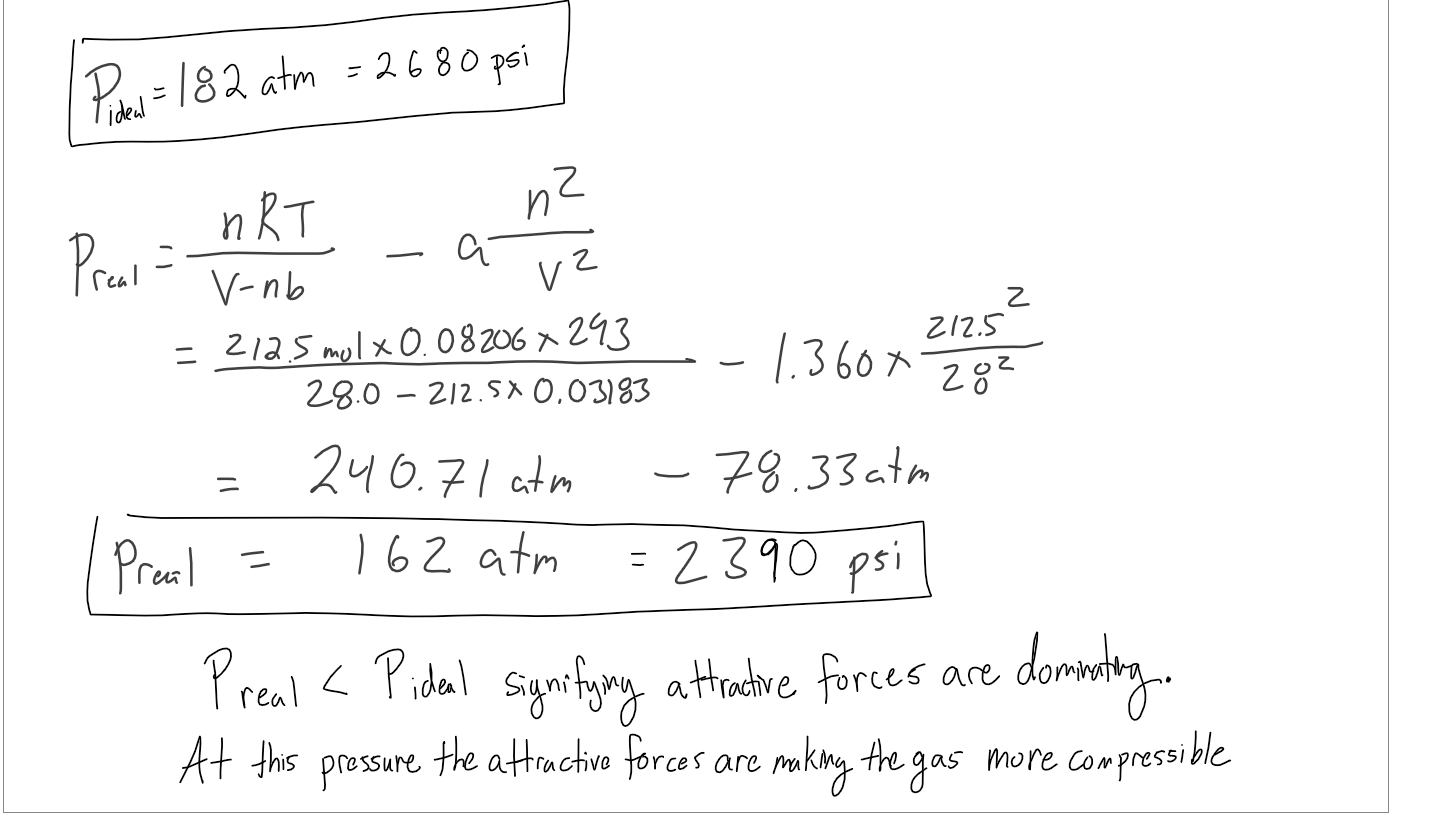 P_ideal = 182 atm = 2680 psi
P_real = nRT / (V-nb) - a n² / V²
= 212.5 mol x 0.08206 x 293 / (28.0 - 212.5 x 0.03183) - 1.360 x 212.5² / 28²
= 240.71 atm - 78.33 atm
P_real = 162 atm = 2390 psi
P real < P ideal signifying attractive forces are dominating.
At this pressure the attractive forces are making the gas more compressible